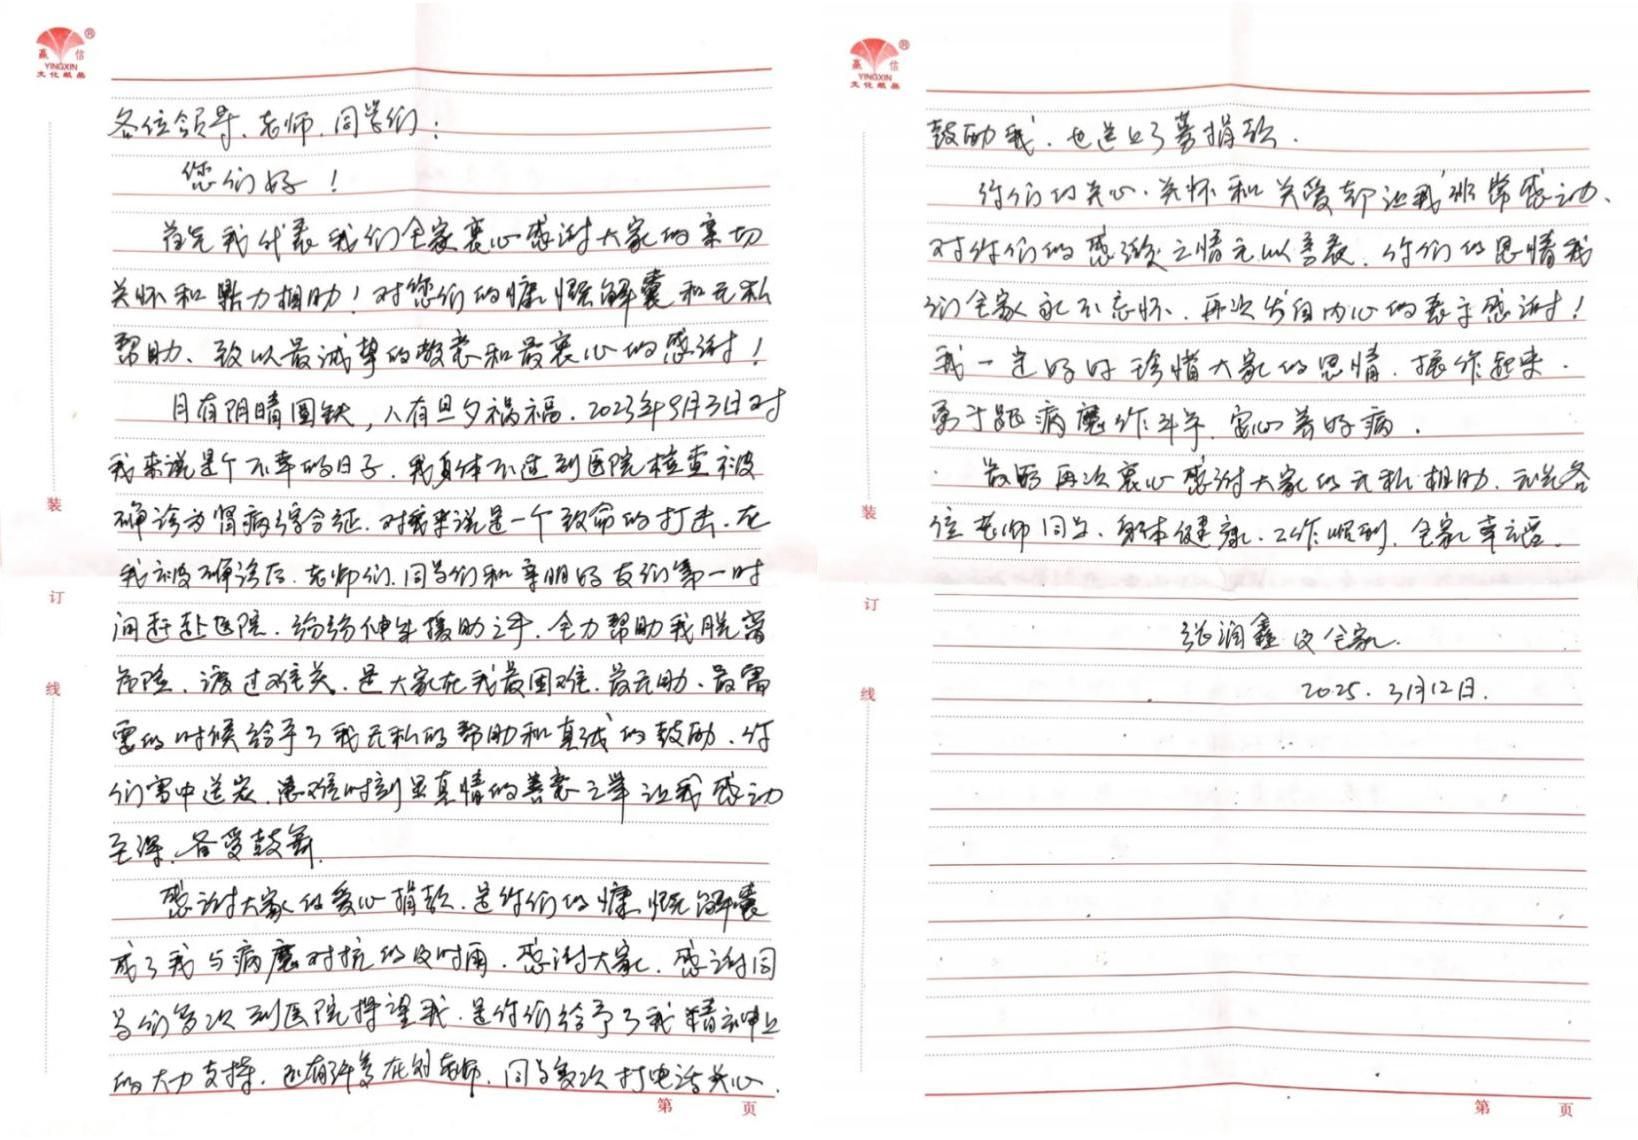 赢信
YINGXIN
文化纸品
各位领导、老师、同学们：
您们好！
首先我代表我们全家衷心感谢大家的亲切
关怀和鼎力相助！对您们的慷慨解囊和无私
帮助、致以最诚挚的敬意和最衷心的感谢！
月有阴晴圆缺，人有旦夕祸福．2023年9月3日对
我来说是个不幸的日子．我身体不适到医院检查被
确诊为肾病综合征．对我来说是一个致命的打击．在
我被确诊后．老师们．同学们和亲朋好友们第一时
间赶赴医院．纷纷伸出援助之手．全力帮助我脱离
危险．渡过难关．是大家在我最困难．最无助．最需
要的时候给予了我无私的帮助和真诚的鼓励．你
们雪中送炭．患难时刻显真情的善意之举让我感动
至深．备受鼓舞．
感谢大家的爱心捐款．是你们的慷慨解囊
成了我与病魔对抗的及时雨．感谢大家．感谢同
学们多次到医院探望我．是你们给予了我精神上
的大力支持．还有许多在外老师．同学多次打电话关心．
装
订
线
第 页
赢信
YINGXIN
文化纸品
鼓励我．也送上了募捐款．
你们的关心．关怀和关爱都让我非常感动、
对你们的感激之情无以言表．你们的恩情我
们全家永不忘怀．再次发自内心的表示感谢！
我一定好好珍惜大家的恩情．振作起来．
勇于跟病魔作斗争．安心养好病．
最后再次衷心感谢大家的无私相助．祝各
位老师同学．身体健康．工作顺利．全家幸福．
张润鑫及全家．
2025．3月12日．
装
订
线
第 页